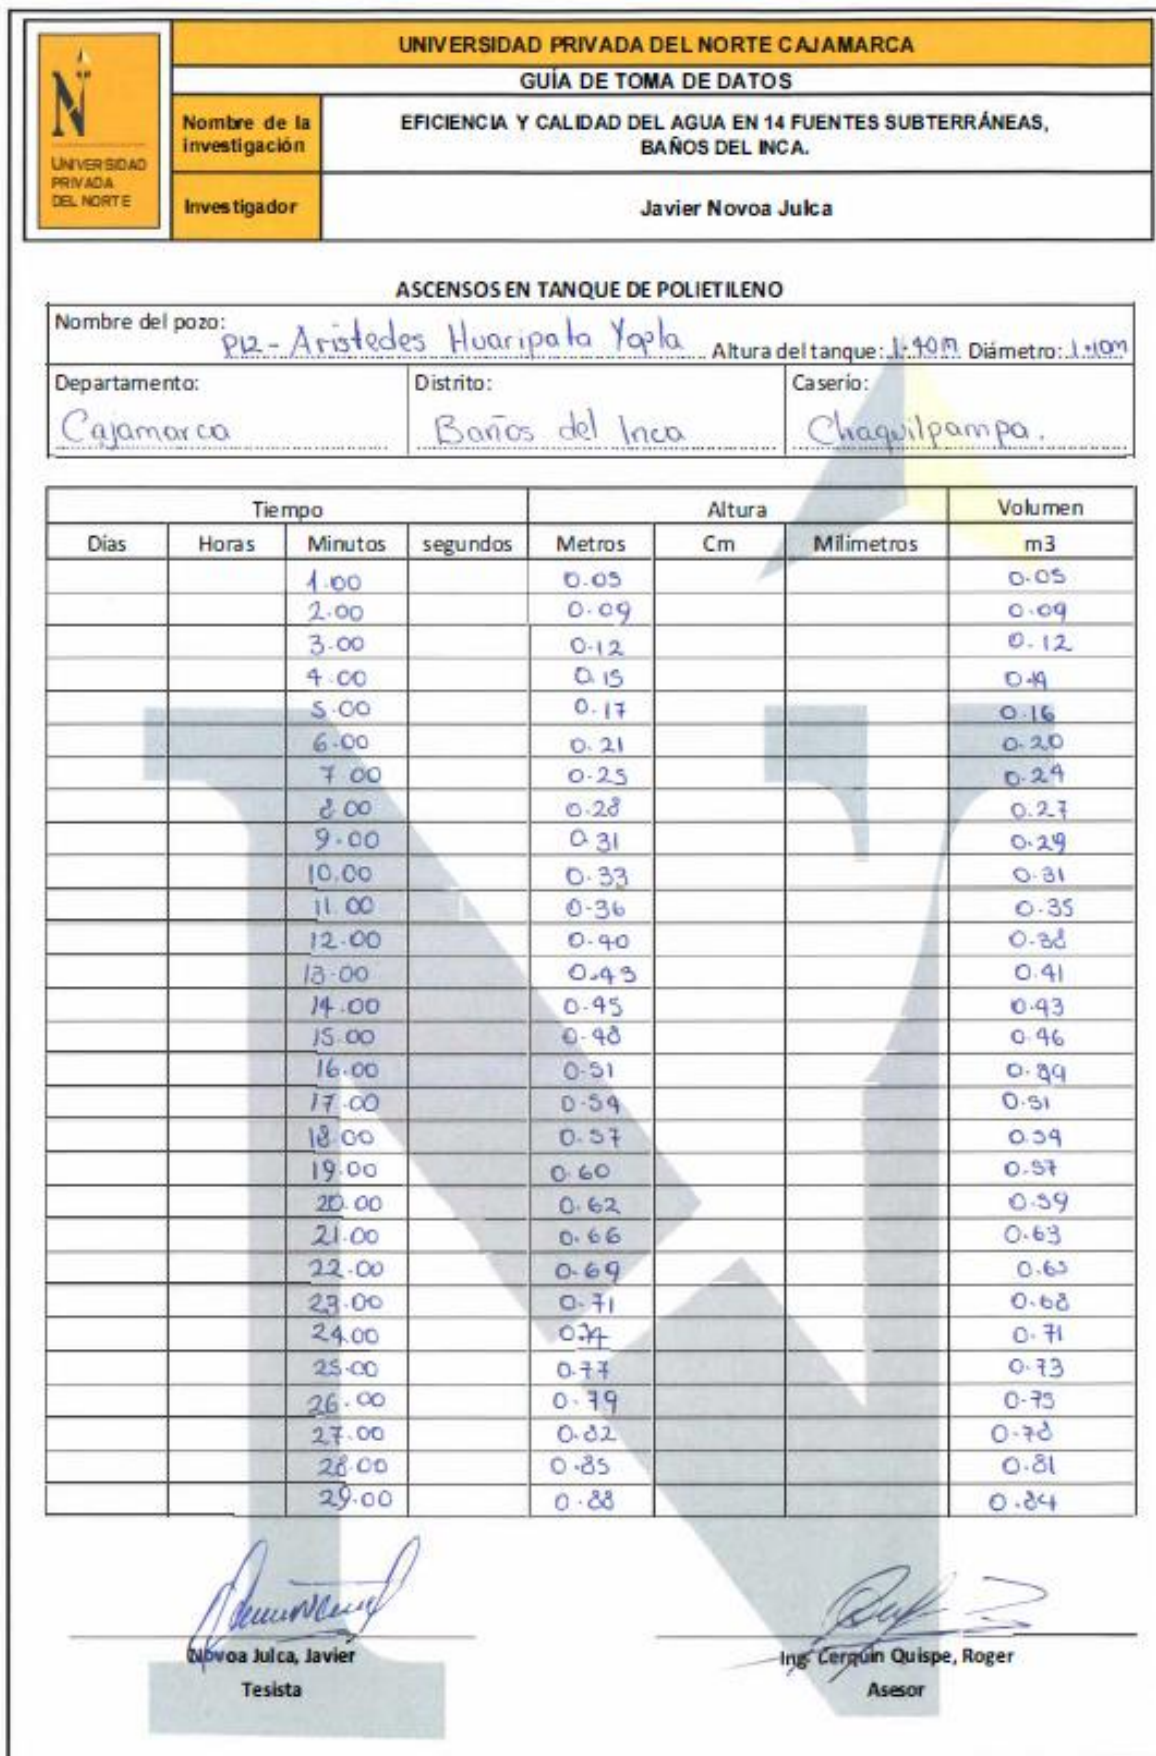 UNIVERSIDAD PRIVADA DEL NORTE CAJAMARCA
GUÍA DE TOMA DE DATOS
N
UNIVERSIDAD
PRIVADA
DEL NORTE
Nombre de la
investigación
EFICIENCIA Y CALIDAD DEL AGUA EN 14 FUENTES SUBTERRÁNEAS,
BAÑOS DEL INCA.
Investigador
Javier Novoa Julca
ASCENSOS EN TANQUE DE POLIETILENO
Nombre del pozo: P12 - Aristedes Huaripata Yopla Altura del tanque: 1.40m Diámetro: 1.10m
Departamento: Distrito: Caserío:
Cajamarca Baños del Inca Chaquilpampa.
Tiempo Altura Volumen
Días Horas Minutos segundos Metros Cm Milimetros m3
1.00 0.05 0.05
2.00 0.09 0.09
3.00 0.12 0.12
4.00 0.15 0.14
5.00 0.17 0.16
6.00 0.21 0.20
7.00 0.25 0.24
8.00 0.28 0.27
9.00 0.31 0.29
10.00 0.33 0.31
11.00 0.36 0.35
12.00 0.40 0.38
13.00 0.43 0.41
14.00 0.45 0.43
15.00 0.48 0.46
16.00 0.51 0.49
17.00 0.54 0.51
18.00 0.57 0.54
19.00 0.60 0.57
20.00 0.62 0.59
21.00 0.66 0.63
22.00 0.69 0.65
23.00 0.71 0.68
24.00 0.74 0.71
25.00 0.77 0.73
26.00 0.79 0.75
27.00 0.82 0.78
28.00 0.85 0.81
29.00 0.88 0.84
Novoa Julca, Javier Ing. Cerquin Quispe, Roger
Tesista Asesor